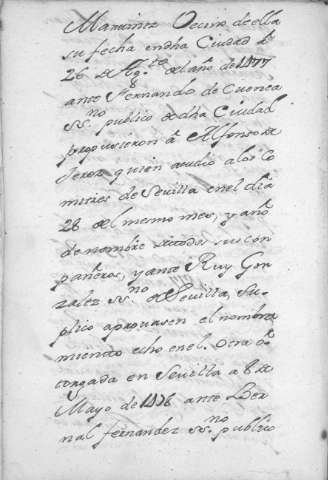 Martinez Vecino de ella
su fecha en dha Ciudad à
26 de Ag.to del año de 1477
ante Fernando de Cuenca
SS.no publico de dha Ciudad
propusieron à Alfonso de
Perez quien acudio a los Co
mitres de Sevilla en el dia
28 del mesmo mes, y año
de nombre de todos sus com
pañeros, y ante Ruy Gon
zalez ss.no de Sevilla, Su
plico aprovasen el nombra
miento echo en el. Otra ôr
torgada en Sevilla a 8 de
Mayo de 1478 ante Ber
nal fernandez ss.no publico